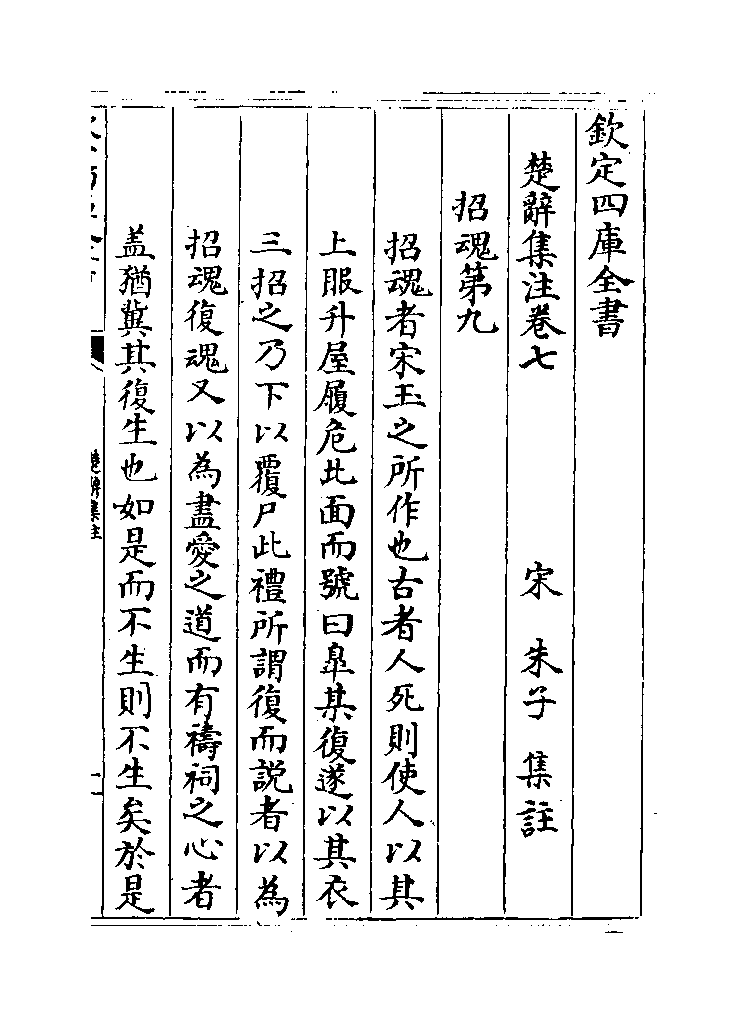 欽定四庫全書
楚辭集注卷七　宋　朱子　集註
招魂第九
招魂者宋玉之所作也古者人死則使人以其
上服升屋履危北面而號曰臯某復遂以其衣
三招之乃下以覆尸此禮所謂復而説者以為
招魂復魂又以為盡愛之道而有禱祠之心者
盖猶冀其復生也如是而不生則不生矣於是
楚辭集注